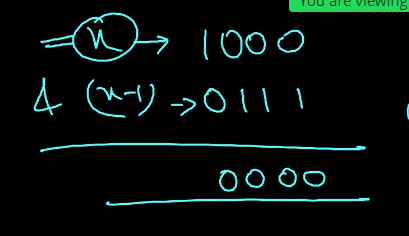 You are viewing
n → 1000
& (n-1) → 0111
0000